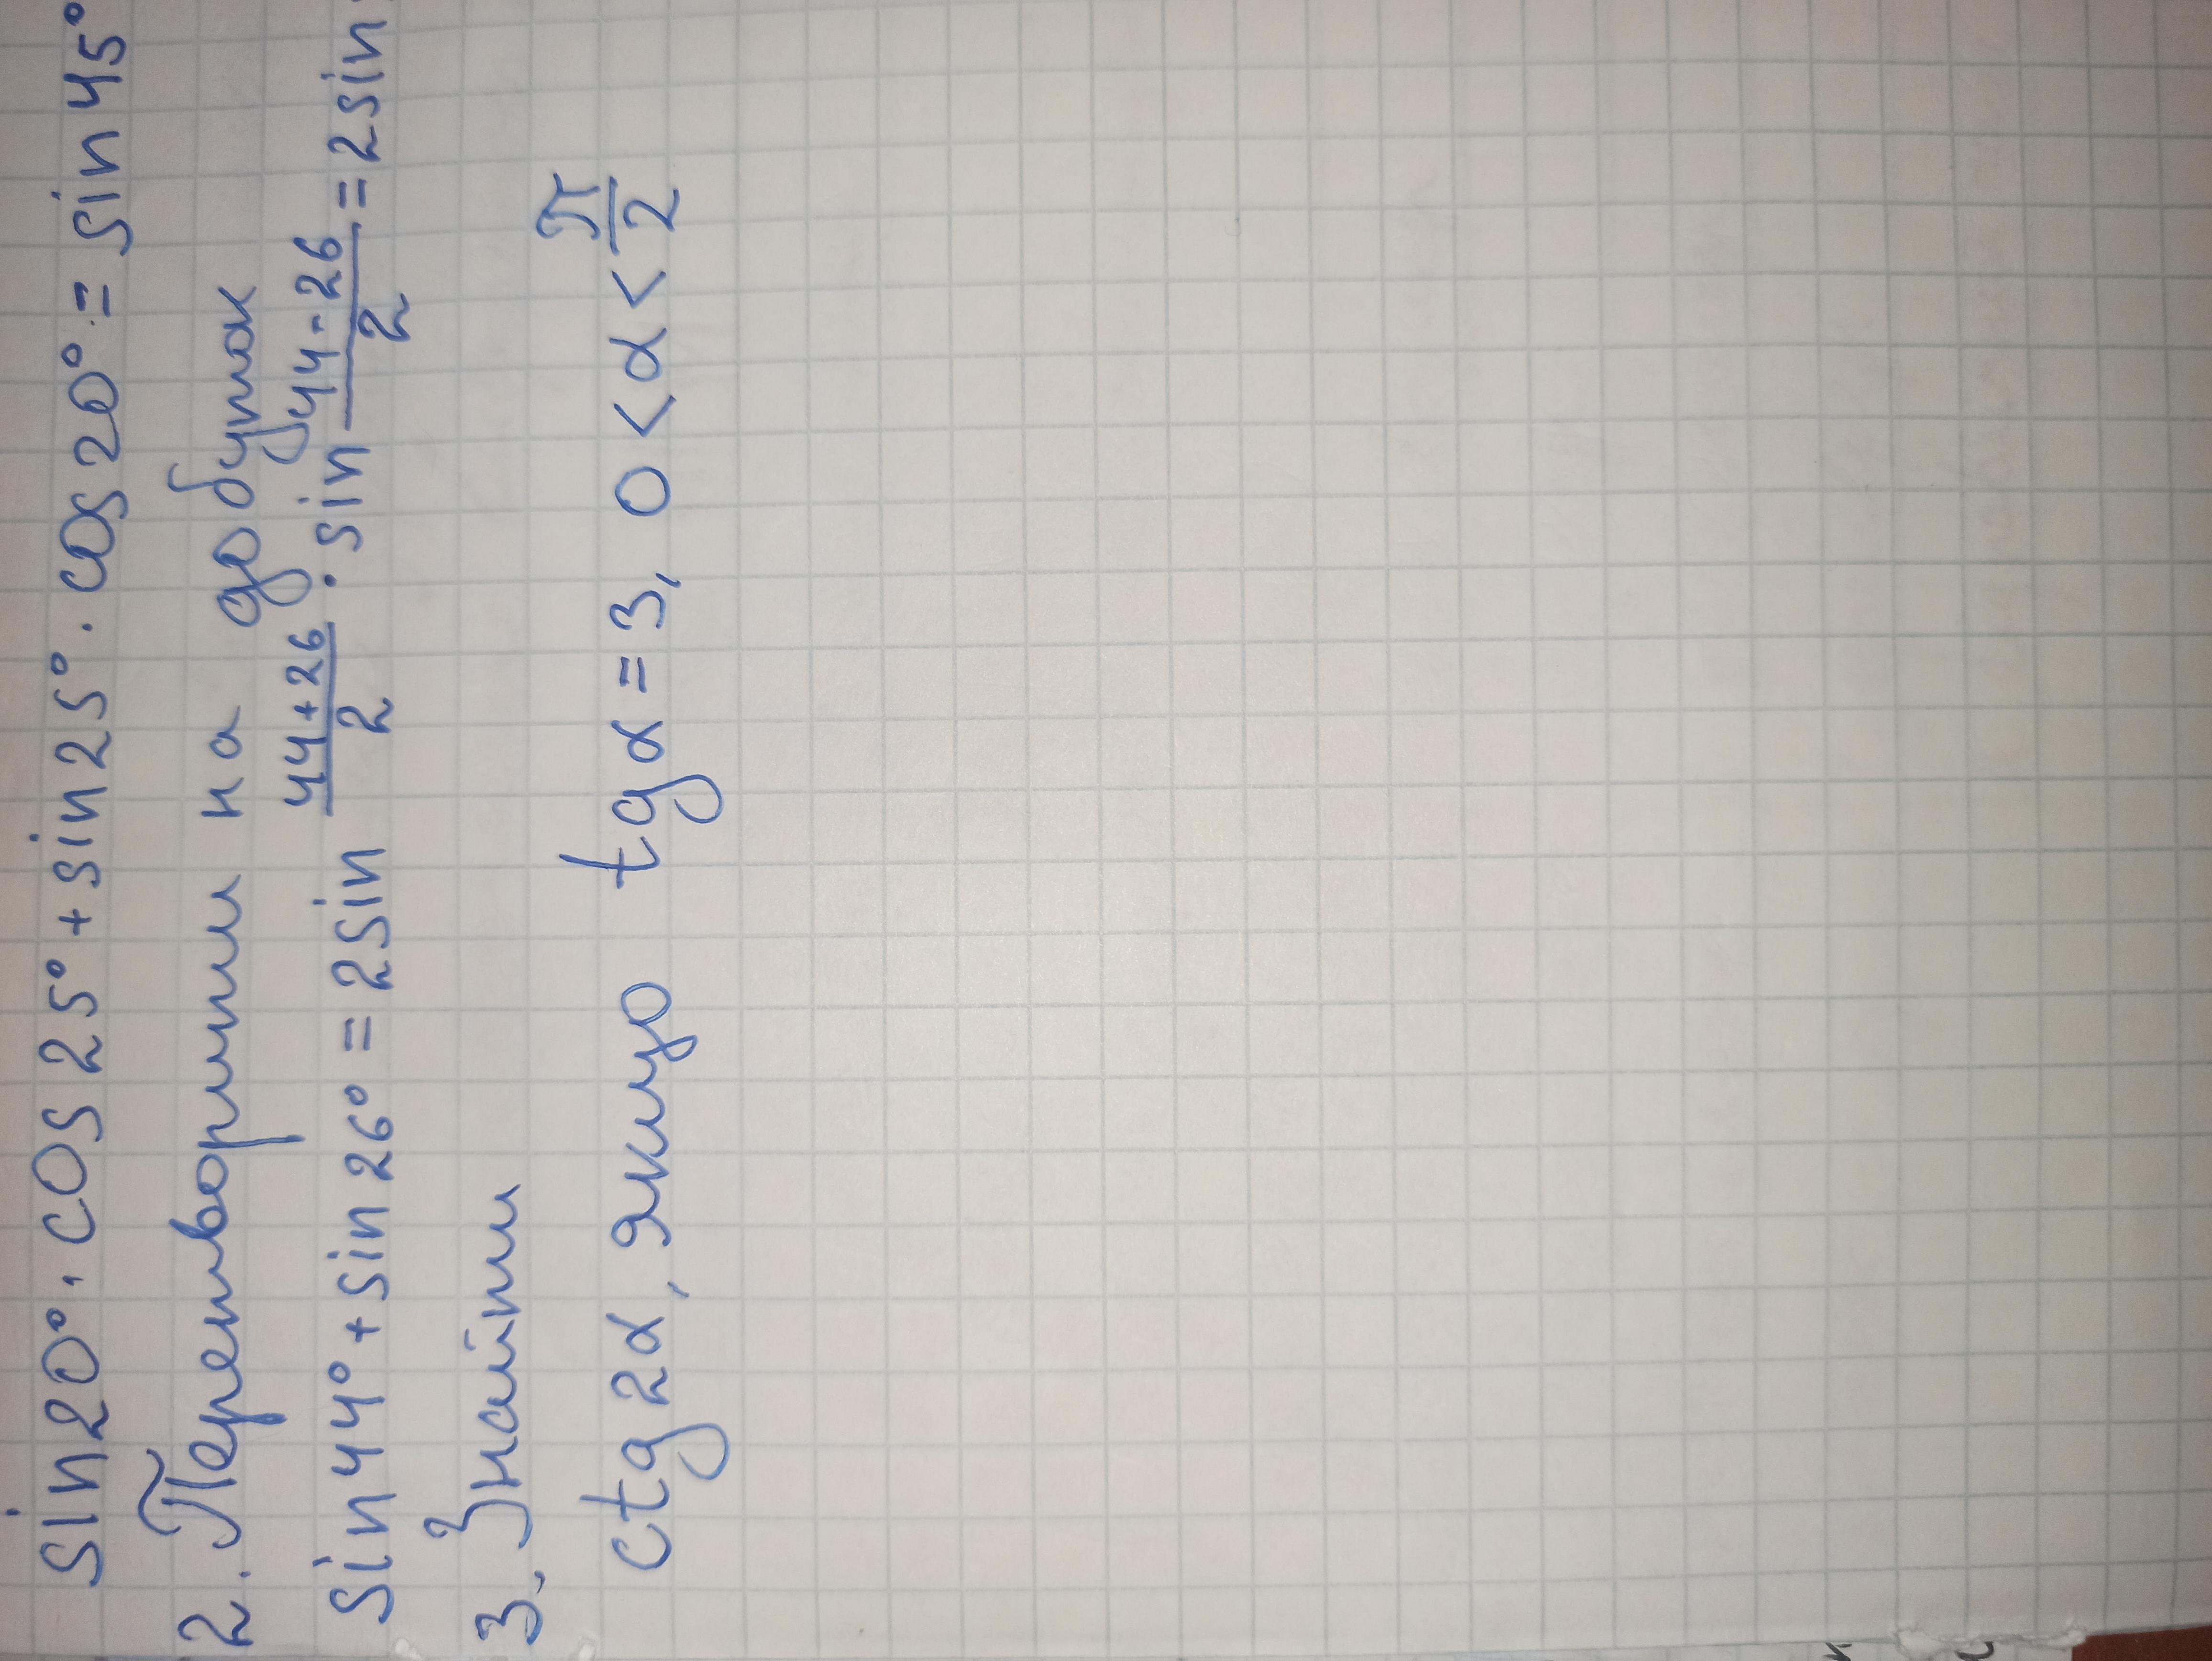 sin20°·cos25°+sin25°·cos20°=sin45°
2. Перетворити на добуток
sin44°+sin26°=2sin (44+26)/2 · sin (44-26)/2 =2sin
3. Знайти
ctg2α, якщо tgα=3, 0<α<π/2